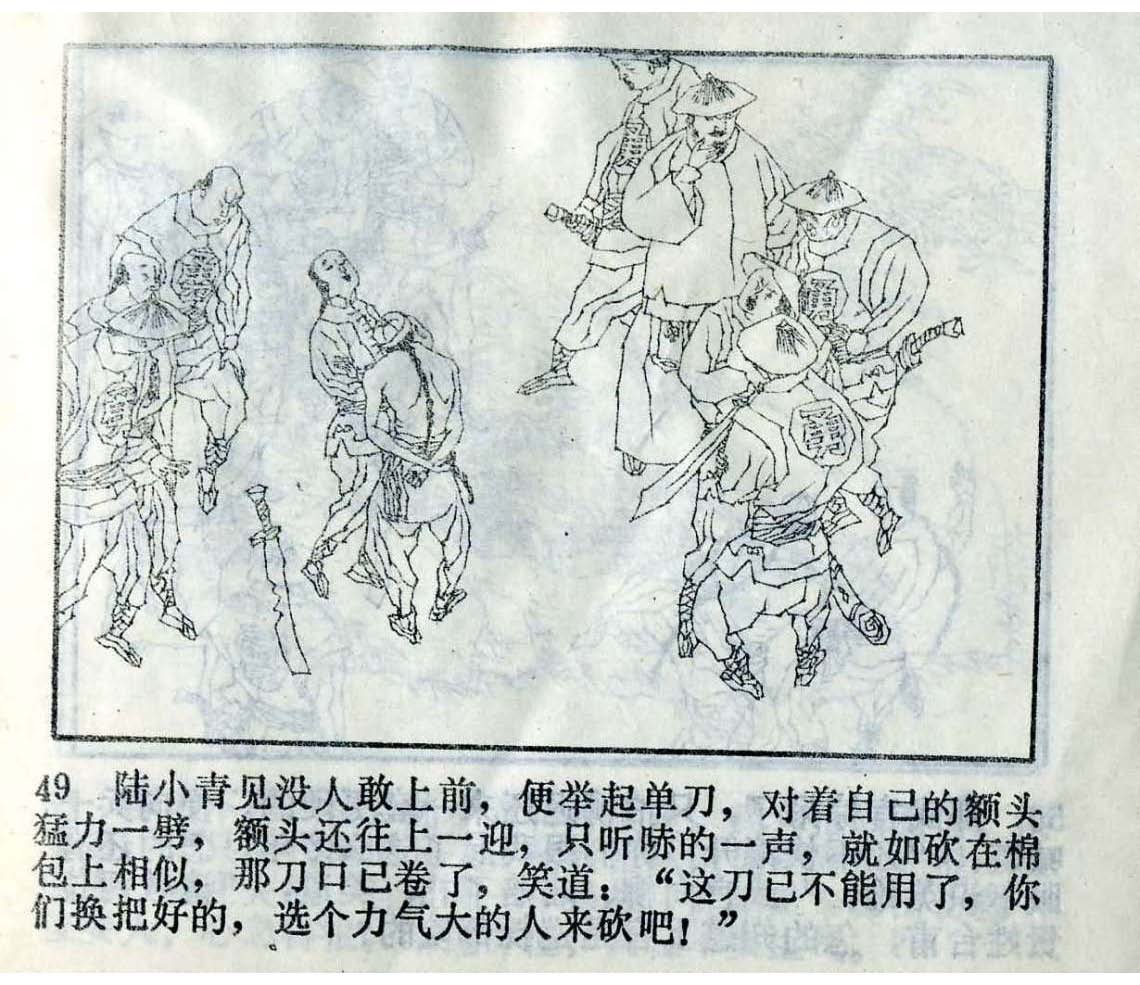 49 陆小青见没人敢上前，便举起单刀，对着自己的额头
猛力一劈，额头还往上一迎，只听哧的一声，就如砍在棉
包上相似，那刀口已卷了，笑道：“这刀已不能用了，你
们换把好的，选个力气大的人来砍吧！”
勇
勇
勇
勇
勇